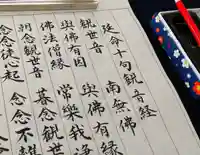 延命十句観音経
観世音 南無佛
與佛有因 與佛有縁
佛法僧縁 常樂我浄
朝念観世音 暮念観世
念念従心起 念念不